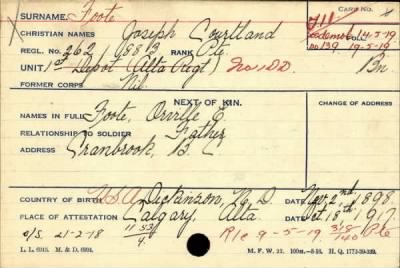 SURNAME. Foote
CARD NO.
CHRISTIAN NAMES Joseph Courtland
REGL. No. 262 1883 RANK Pte.
Sosdemob 14-5-19
no 139 19-5-19
UNIT 1st Depot (Alta Regt) Bn
FORMER CORPS Nil.
NEXT OF KIN.
CHANGE OF ADDRESS.
NAMES IN FULL Foote, Orville E.
RELATIONSHIP TO SOLDIER Father
ADDRESS Cranbrook, B.C.
COUNTRY OF BIRTH U.S.A. Dickinson, N.D. DATE Nov. 2nd 1898.
PLACE OF ATTESTATION Calgary, Alta. DATE Oct. 18th 1917.
O/S. 21-2-18 R/c 9-5-19. Pte
L. L. 6915. M. & D. 6994. M. F. W. 22. 100m.—8-18. H. Q. 1772-39-339.